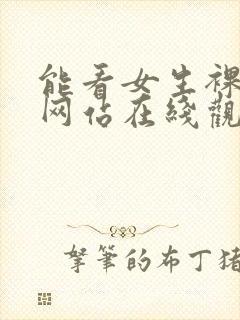 能看女生裸
网站在线观
拏筆的布丁猪